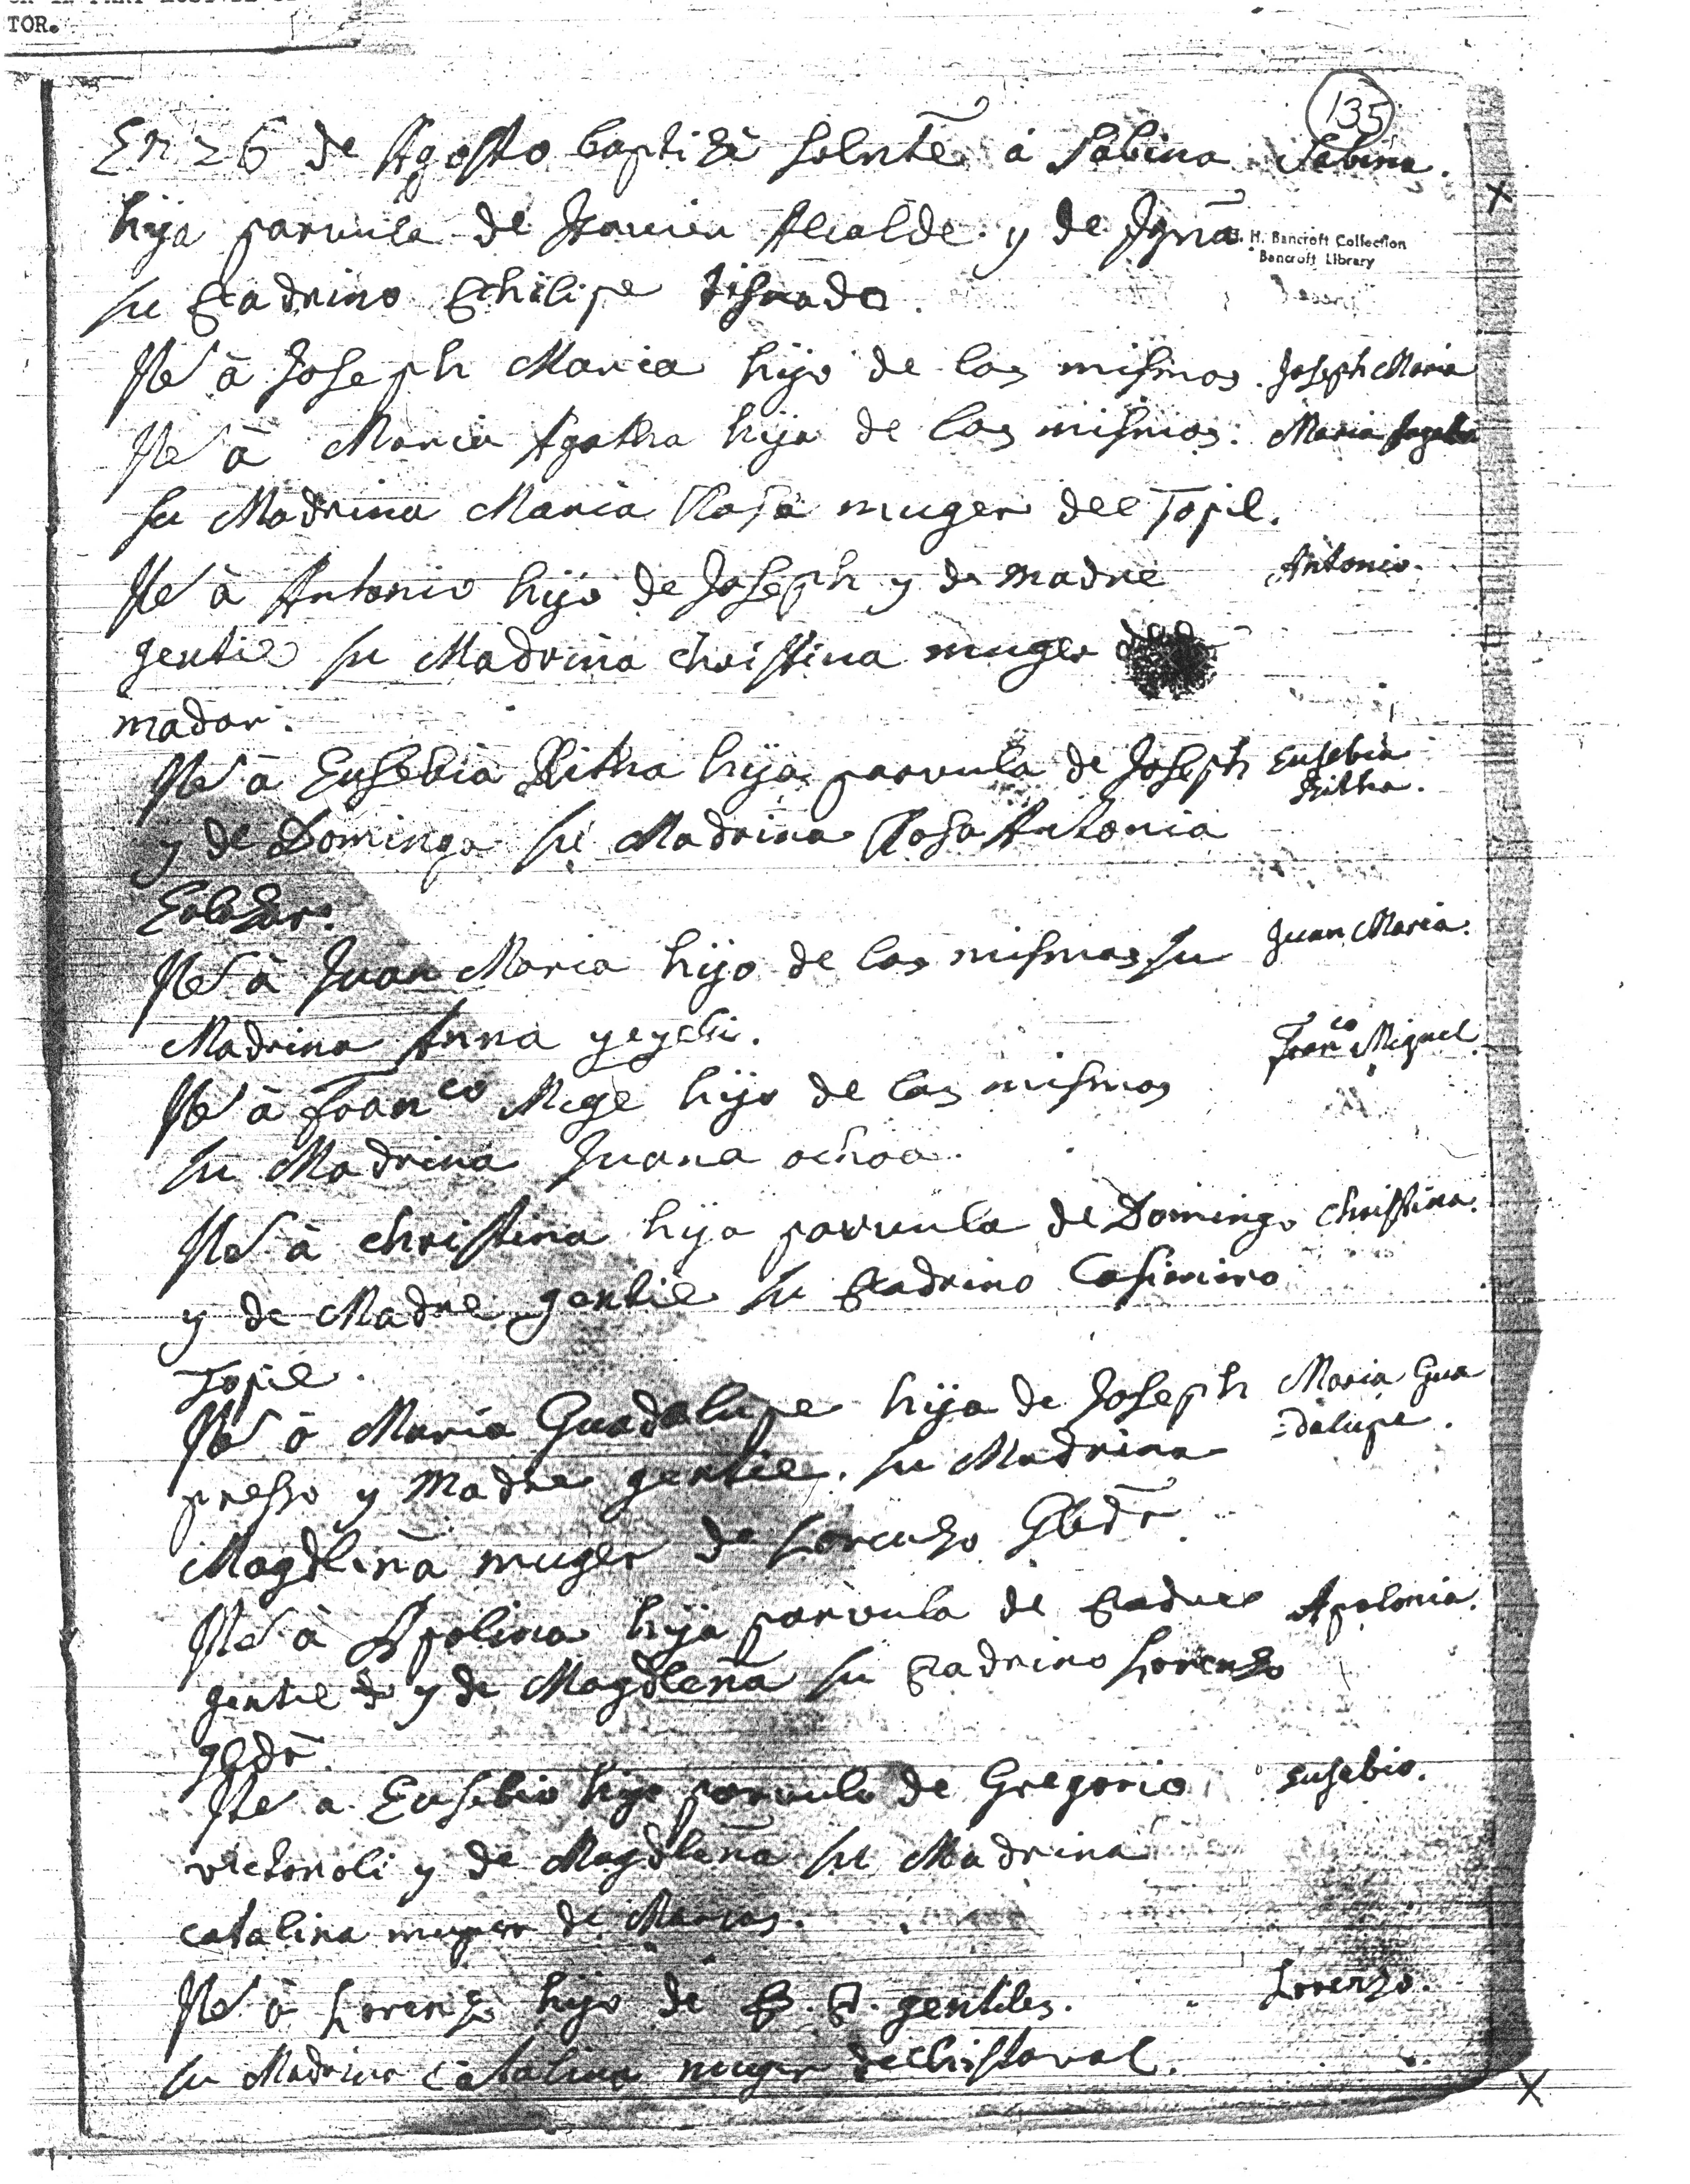 TOR.
135
En 26 de Agosto baptizè solnte à Sabina Sabina.
hija parvula de Xavier Alcalde y de Ignã
H. H. Bancroft Collection
Bancroft Library
su Padrino Philipe tisnado.
Ytê à Joseph Maria hijo de los mismos. Joseph Maria
Ytê à Maria Agatha hija de los mismos. Maria Agatha
su Madrina Maria Rosa muger del Topil.
Ytê à Antonio hijo de Joseph y de madre Antonio.
gentil su Madrina Christina muger del
mador.
Ytê à Eusebia Ritha hija parvula de Joseph Eusebia
Ritha.
y de Dominga su Madrina Rosa Antonia
Ytê à Juan Maria hijo de los mismos su Juan Maria.
Madrina Anna
Franco Miguel
Ytê à Franco Mige hijo de los mismos
su Madrina Juana ochoa.
Ytê à Christina hija parvula de Domingo Christina.
y de Madre gentil su Padrino Casimiro
Topil.
Ytê à Maria Guadalupe hija de Joseph Maria Gua
=dalupe.
presso y Madre gentil. su Madrina
Magdlinã muger de Lorenzo Gbdr
Ytê à Apolina hija parvula de Padre Apolonia.
gentil y de Magdlenã su Padrino Lorenzo
gbdr.
Ytê a Eusebio hijo parvulo de Gregorio Eusebio.
victoricoli y de Magdlenã su Madrina
catalina muger de Marcos.
Ytê à Lorenzo hijo de P. P. gentiles. Lorenzo.
su Madrina catalina muger de Christoval.